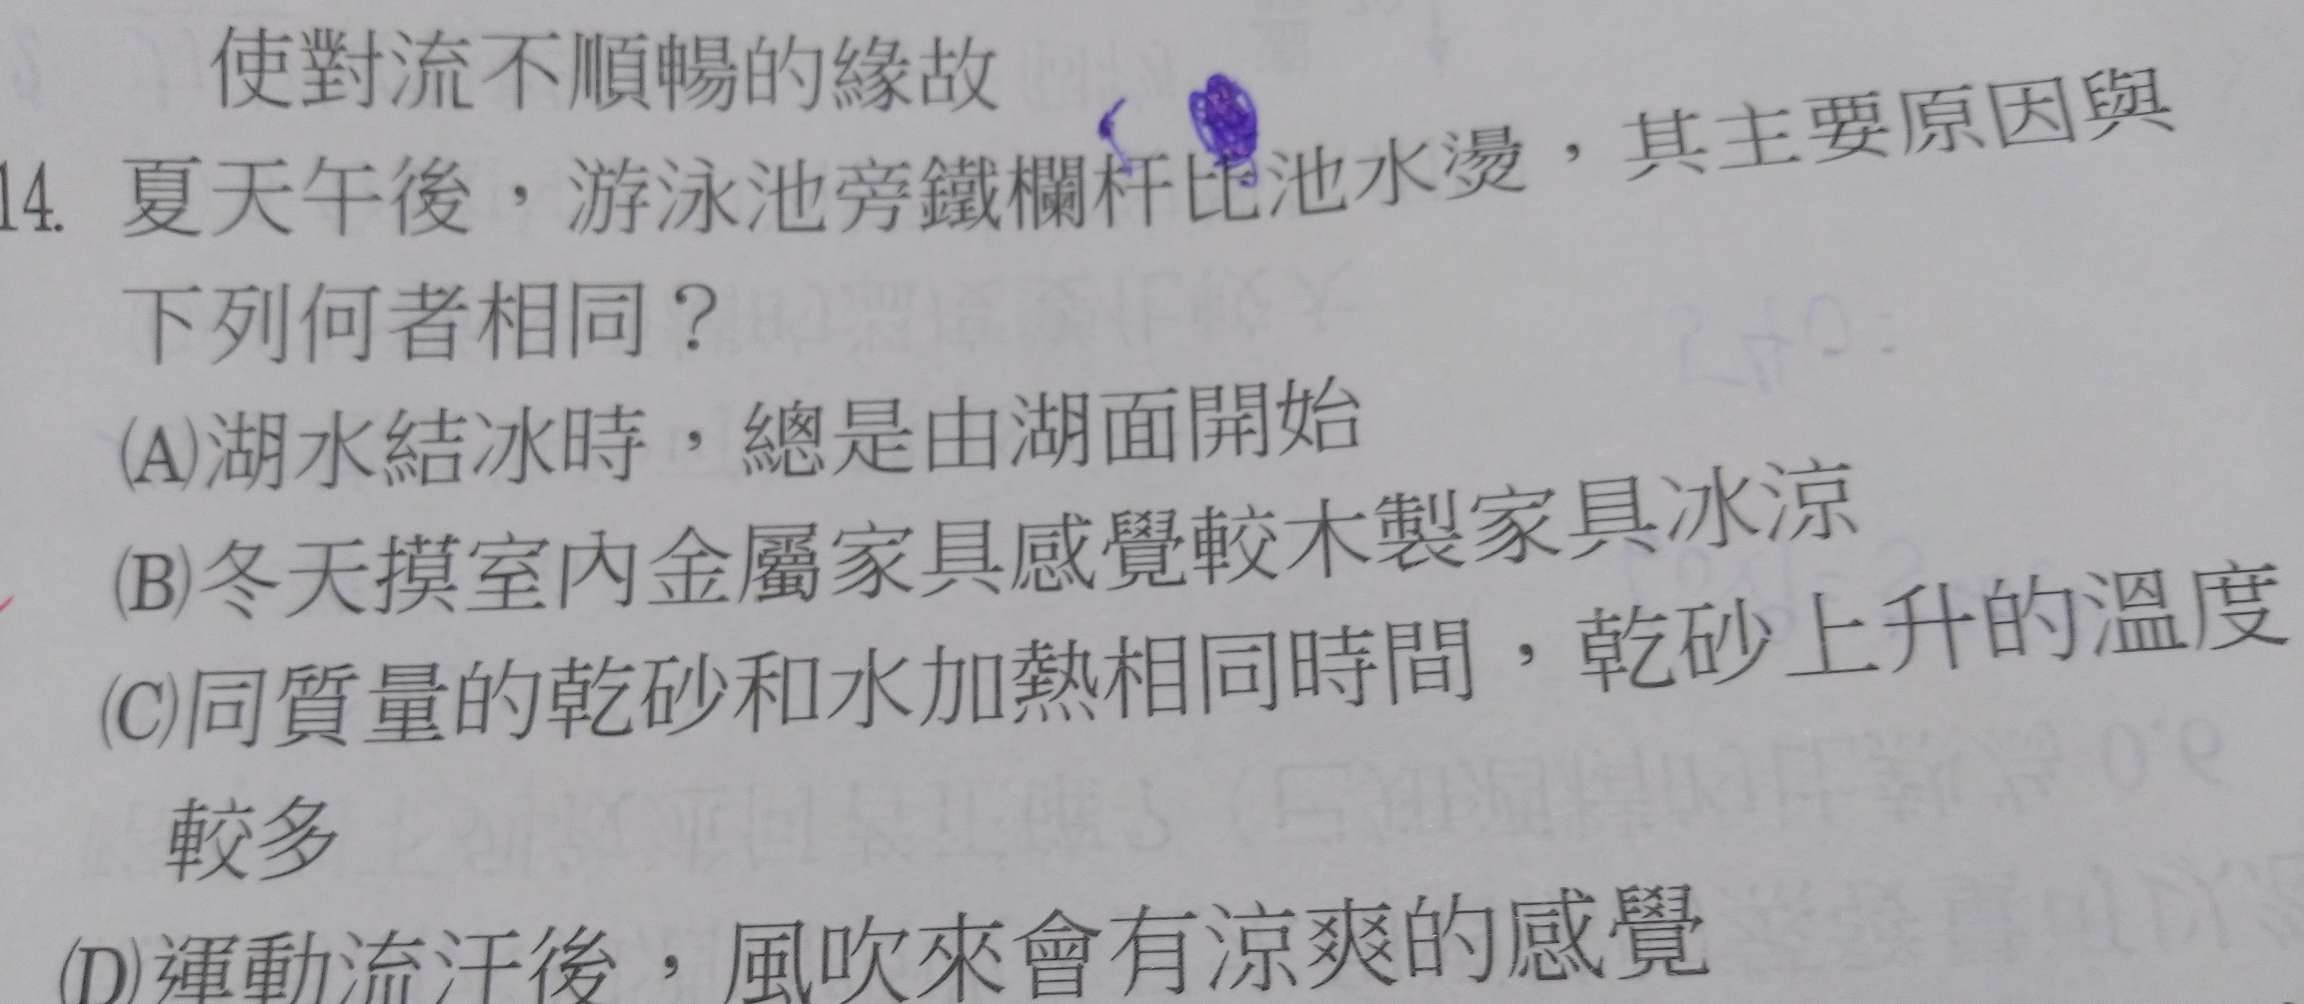 使對流不順暢的緣故
14. 夏天午後，游泳池旁鐵欄杆比池水燙，其主要原因與
下列何者相同？
(A)湖水結冰時，總是由湖面開始
(B)冬天摸室內金屬家具感覺較木製家具冰涼
(C)同質量的乾砂和水加熱相同時間，乾砂上升的溫度
較多
(D)運動流汗後，風吹來會有涼爽的感覺